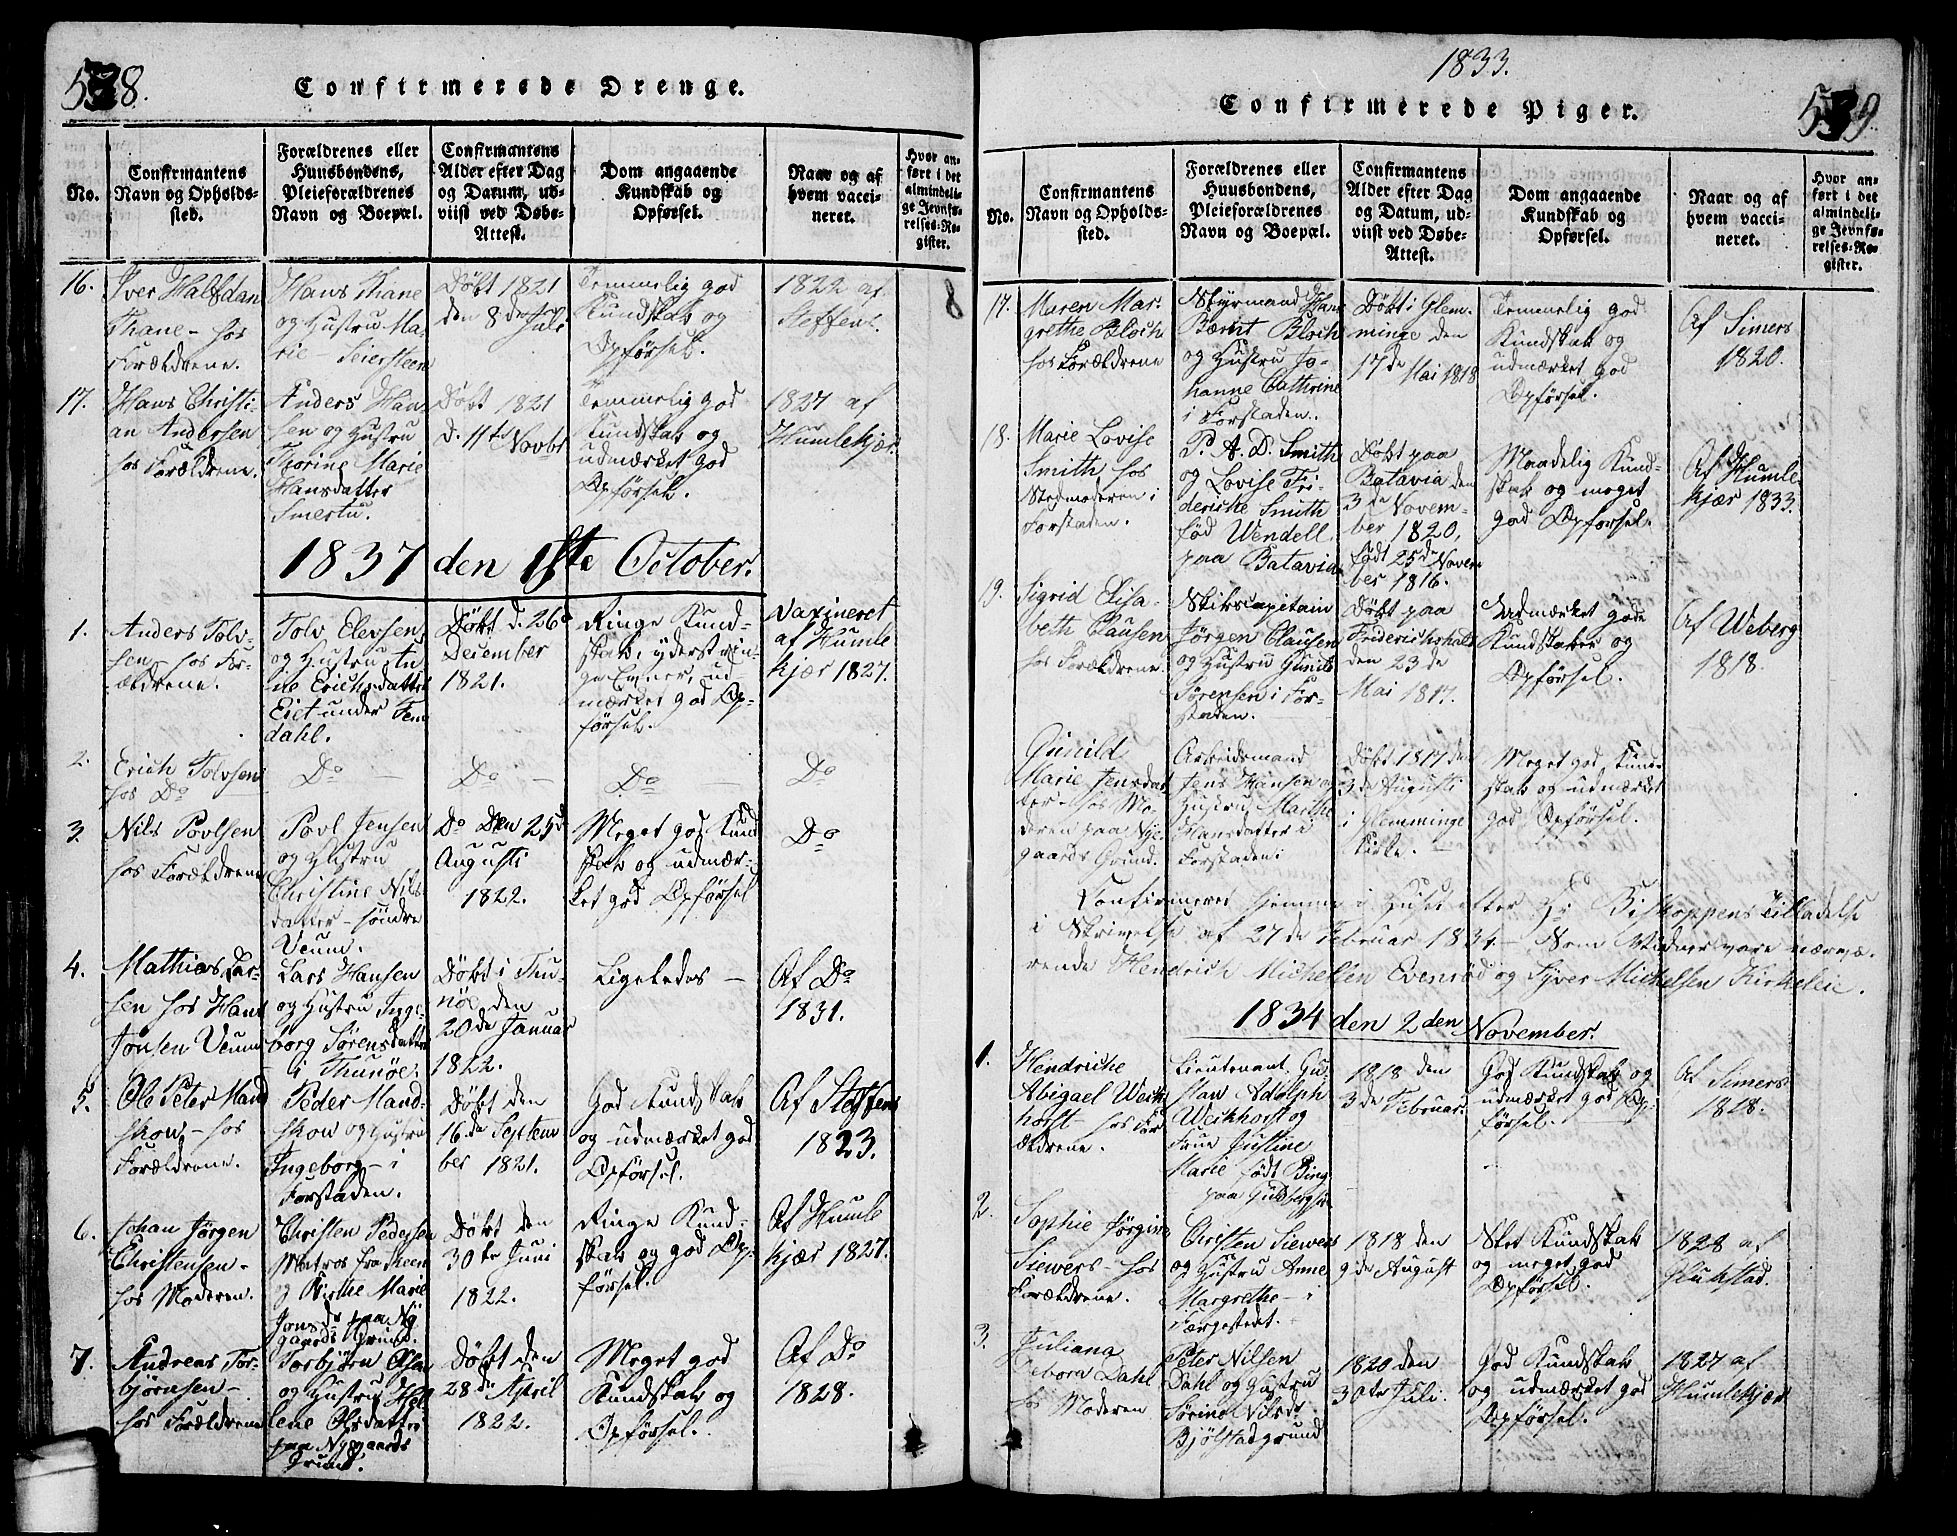 538.
Confirmerede Drenge.
No.
Confirmantens
Navn og Opholds-
sted.
Forældrenes eller
Huusbondens,
Pleieforældrenes
Navn og Boepæl.
Confirmantens
Alder efter Dag
og Datum, ud-
viist ved Døbe-
Attest.
Dom angaaende
Kundskab og
Opførsel.
Naar og af
hvem vacci-
neret.
Hvor an-
ført i det
almindeli-
ge Jevnfø-
relses-Re-
gister.
16.
Iver Halfdan
Thane - hos
Forældrene.
Hans Thane
og Hustru Ma-
rie - Seiersteen
Døbt 1821
den 8de Juli
Temmelig god
Kundskab og
Opførsel.
1822 af
Steffens.
8
17.
Hans Christi-
an Andersen
hos Forældrene.
Anders Han-
sen og Hustru
Thorine Marie
Hansdatter
Smertu.
Døbt 1821
d. 11te Novbr
Temmelig god
Kundskab og
udmærket god
Opførsel.
1827 af
Humlekjær.
1837 den 1ste October.
1.
Anders Tolv-
sen hos For-
ældrene.
Tolv Elevsen
og Hustru An
ne Erichsdatter
Eiet under Tem
dahl.
Døbt d. 26de
December
1821.
Ringe Kund-
skab, yderst rin-
ge Evner, ud-
mærket god Op-
førsel.
Vaxineret
af Humle
kjær 1827.
2.
Erich Tolvsen
hos Do
Do
Do
Do
Do
3.
Nils Povlsen
hos Forældrene
Povl Jensen
og Hustru
Christine Nils
datter - søndre
Ueum.
Do Den 25de
Augusti
1822.
Meget god Kund
skab og udmær-
ket god Opførsel
Do
4.
Mathias Lar-
sen hos Hans
Jonsen Ueum
Lars Hansen
og Hustru Inge
borg Sørensdatter
i Thunøe.
Døbt i Thu-
nöe den
20de Januar
1822.
Ligeledes -
Af Do
1831.
5.
Ole Peter Mand
skow - hos
Forældrene.
Peder Mand-
skow og Hustru
Ingeborg - i
Forstaden.
Døbt den
16de Septem
ber 1821.
God Kundskab
og udmærket god
Opførsel.
Af Steffens
1823.
6.
Johan Jørgen
Christensen -
hos Moderen.
Christen Pedersen
Matros fra Skeen
og Birthe Marie
Jonsdr paa Ny
gaards Grund.
Døbt den
30te Juni
1822.
Ringe Kund-
skab og god Op-
førsel.
Af Humle
kjær 1827.
7.
Andreas Tor-
bjørnsen -
hos Forældrene
Torbjørn Olsen
og Hustru Hel
lene Olsdatter
paa Nygaards
Grund.
Døbt den
28de April
1822.
Meget god
Kundskab og
Opførsel.
Af Do
1828.
1833.
539
Confirmerede Piger.
No.
Confirmantens
Navn og Opholds-
sted.
Forældrenes eller
Huusbondens,
Pleieforældrenes
Navn og Boepæl.
Confirmantens
Alder efter Dag
og Datum, ud-
viist ved Døbe-
Attest.
Dom angaaende
Kundskab og
Opførsel.
Naar og af
hvem vacci-
neret.
Hvor an-
ført i det
almindeli-
ge Jevnfø-
relses-Re-
gister.
17.
Maren Mar-
grethe Bloch
hos Forældrene
Styrmand Hans
Bærnt Bloch
og Hustru Jo-
hanne Cathrine
i Forstaden.
Døbt i Glem-
minge den
17de Mai 1818
Temmelig god
Kundskab og
udmærket god
Opførsel.
Af Simers
1820.
18.
Marie Lovise
Smith hos
Stedmoderen i
Forstaden.
P. A. D. Smith
og Lovise Fri-
deriche Smith
fød Wendell
paa Batavia
Døbt paa
Batavia den
3de Novem-
ber 1820,
født 25de Novem
ber 1816.
Maadelig Kund-
skab og meget
god Opførsel.
Af Humle
kjær 1833.
19.
Sigrid Elisa-
beth Clausen
hos Forældrene.
Skibscapitain
Jørgen Clausen
og Hustru Gunild
Sørensen i For-
staden.
Døbt paa
Friderichshald
den 23de
Mai 1817.
Udmærket gode
Kundskaber og
Opførsel.
Af Weberg
1818.
Gunild
Marie Jensdat-
ter - hos Mo-
deren paa Nye
gaards Grund.
Arbeidsmand
Jens Hansen og
Hustru Marthe
Hansdatter i
Forstaden.
Døbt 1817 den
3de Augusti
i Glemminge
Kirke.
Meget god Kund-
skab og udmærket
god Opførsel.
Confirmeret hjemme i Huset efter Hr Biskoppens Tilladelse
i Skrivelse af 27de Februar 1834 - Som Vidner vare nærvæ-
rende Hendrich Michelsen Evenrød og Syver Michelsen Kirkeleie.
1834 den 2den November.
1.
Hendriche
Abigael Weik
horst - hos For
ældrene.
Lieutenant Gu-
stav Adolph
Weikhorst og
Frue Justine
Marie født Bing
paa Guldbergsie
1818 den
3de Februar.
God Kundskab og
udmærket god Op-
førsel.
Af Simers
1818.
2.
Sophie Jørgine
Siewers - hos
Forældrene.
Christen Siewers
og Hustru Anne
Margrethe - i
Færgestedet.
1818 den
9de August
Slet Kundskab
og meget god
Opførsel.
1828 af
Glukstad.
3.
Juliana
Deborn Dahl
hos Moderen
Peter Nilsen
Dahl og Hustru
Sørine Nilsdr
Bjølstadgrund
1820 den
30te Juli.
God Kundskab
og udmærket god
Opførsel.
1827 af
Humlekjær